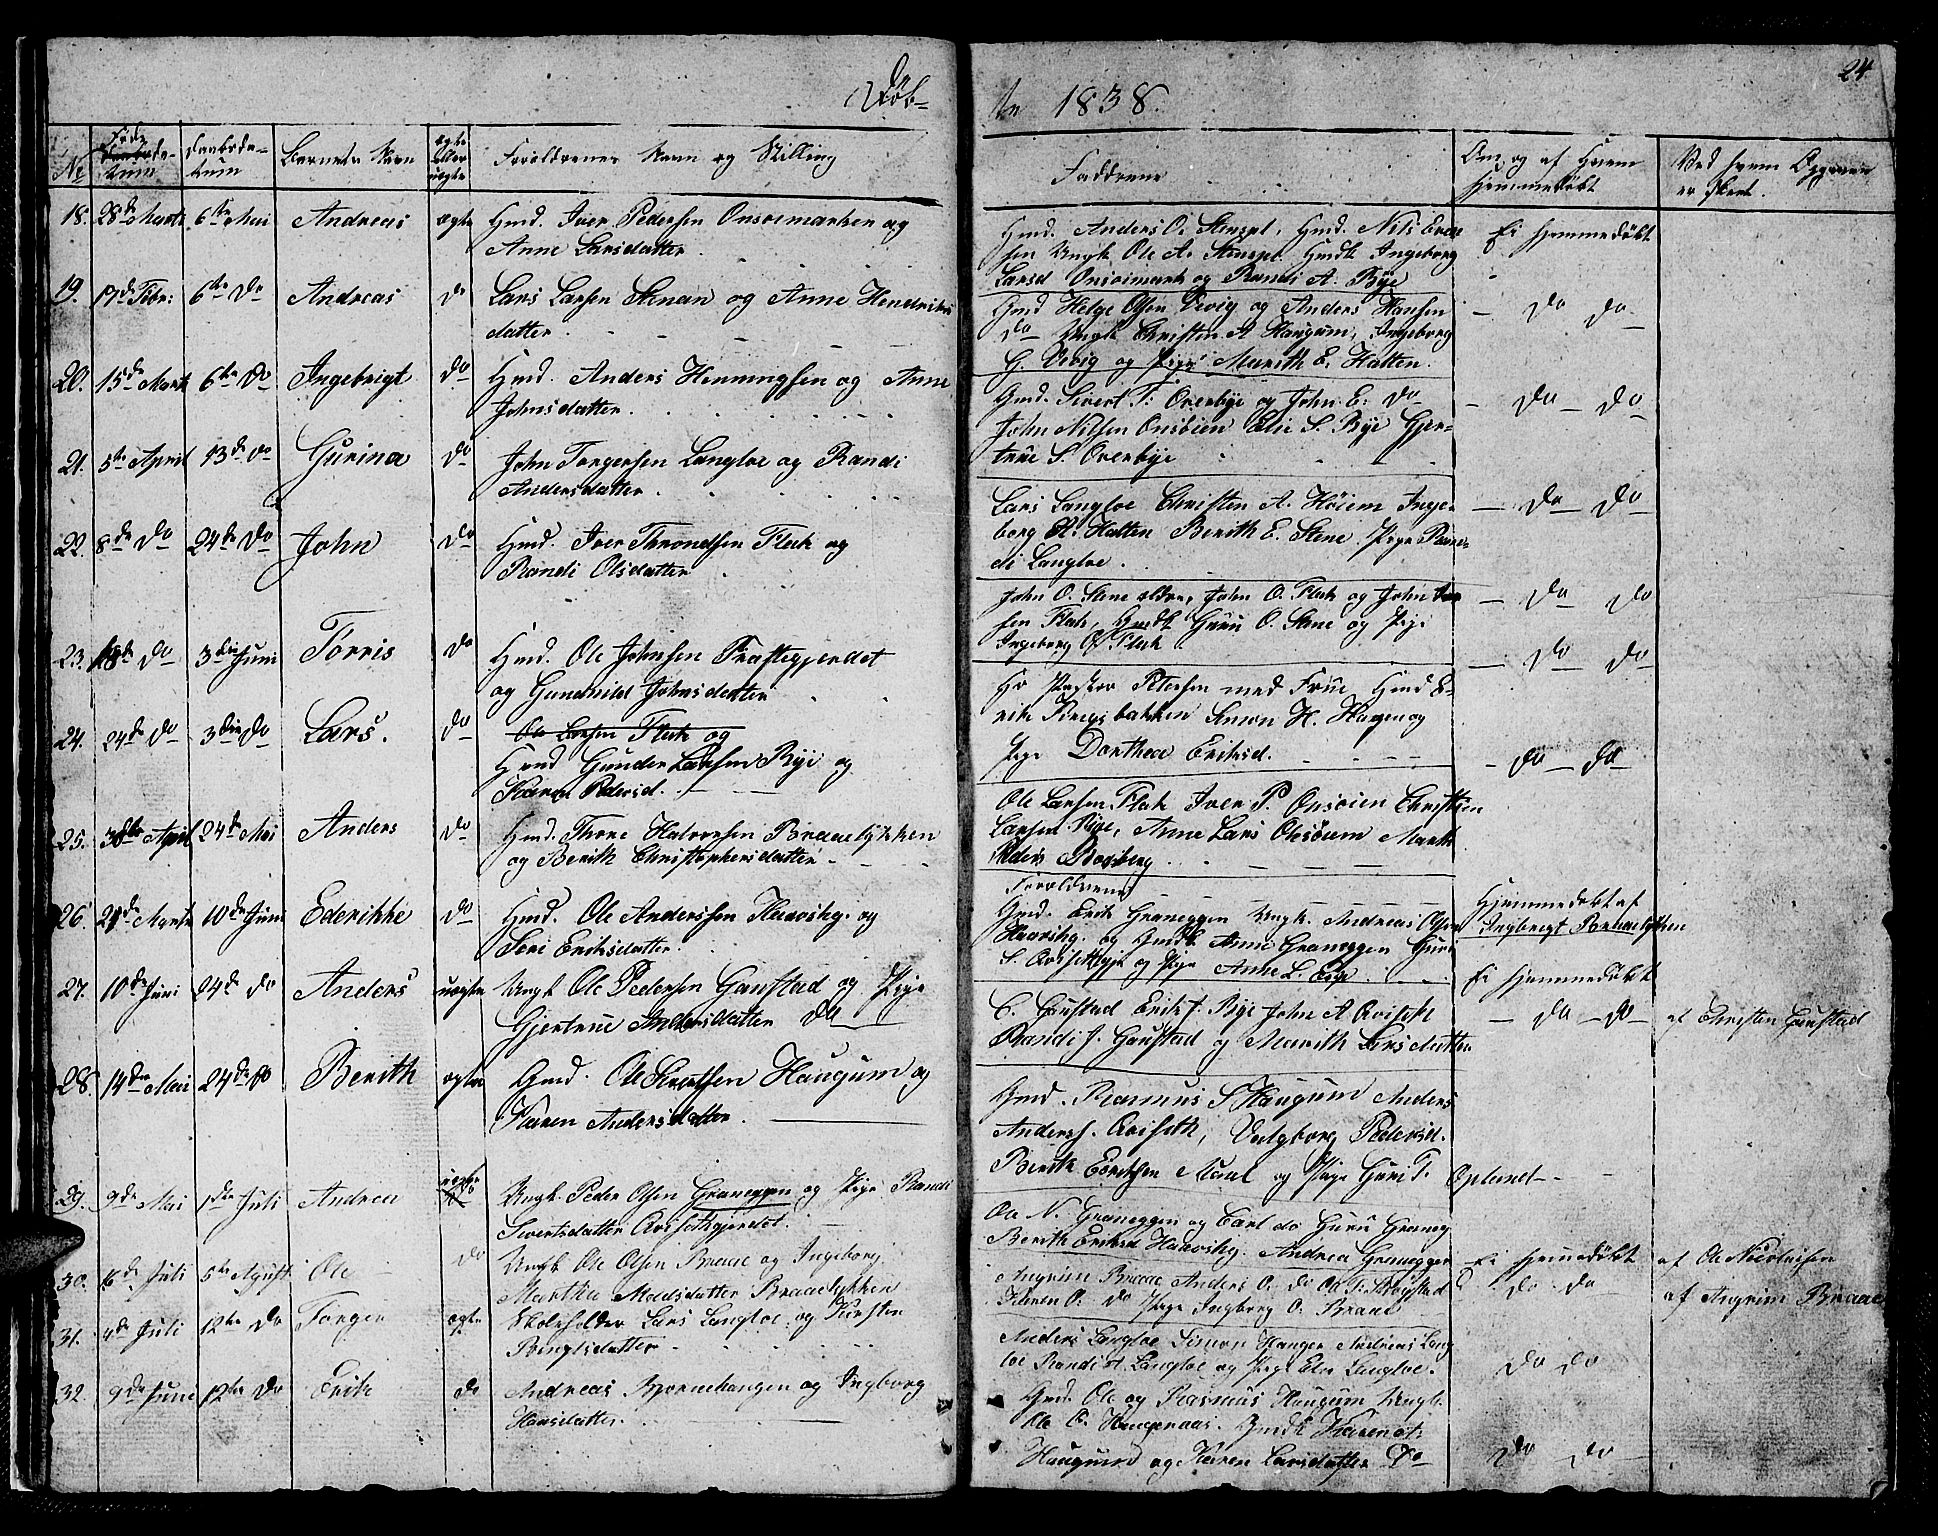 Døb-
te 1838.
24
No
Føde-
tum
Daabsda-
tum
Barnets Navn
ægte
eller
uægte
Forældrenes Navn og Stilling
Faddrene
Om og af Hvem
hjemmedøbt
Ved hvem Opgaven
er skeet.
18. 28de Marts 6te Mai Andreas ægte Gmd. Iver Pedersen Onsøimarken og
Anne Larsdatter
Gmd. Anders O. Gmd. Nils
sen Ungk Ole A. Gmdk Ingeborg
Larsd Onsøimark og Randi A. Bye
Ei hjemmedøbt
19. 17de Febr: 6te Do Andreas Do Lars Larsen Stenan og Anne Hendriks
datter
Gmd Helge Olsen Vevig og Anders Hansen
Do Ungk Christen A Haugum, Ingeborg
G. Vevig og Pige Marith E. Hatten.
Do Do
20. 15de Marts 6te Do Ingebrigt Do Gmd. Anders Henningsen og Anne
Johnsdatter
Gmd. Sivert T: Overbye og John E: Do
John Nilsen Onsøien Eli S. Bye Gjer-
true S. Overbye
Do Do
21. 5te April 13de Do Gurina Do John Torgersen Langloe og Randi
Andersdatter
Lars Langloe Christen A. Høiem Inge-
borg R. Hatten Berith E. Stene Pige Ran-
di Langloe.
Do Do
22. 8de Do 24de Do John Do Gmd. Iver Throndsen Flak og
Randi Olsdatter
John O. Stene ældre, John O. Flak og John
sen Flak, Gmdk Guru O. Stene og Pige
Ingeborg O. Flak
Do Do
23. 18de Do 3die Juni Tørris Do Gmd. Ole Johnsen Præstegjerdet
og Gundhild Johnsdatter
Hr Pastor Petersen med Frue Gmd E-
rik Ringsbakken Simon H. Haugen og
Pige Dorthea Eriksd.
Do Do
24. 24de Do 3die Do Lars. Do Ole Larsen Flak og
Gmd Gunder Larsen Bye og
Karen Pedersd.
Ole Larsen Flak Iver P. Onsøien Christen
Larsen Bye, Anne Lars Onsøien Marith
Peders Rosberg
Do Do
25. April 24de Mai Anders Do Gmd. Thore Halvorsen Braaelykken
og Berith Christophersdatter
Forældrene
Hjemmedøbt af
Ingbrigt Braaelykken
26 Marts 10de Juni Ederikke Do Gmd. Ole Anderssen Haavshg. og
Seri Eriksdatter
Gmd. Erik Graneggen Ungk. Andreas Olsen
Haavshg. og Gmdk Anne Graneggen Guri
S. og Pige Anne L. Esp
Ei hjemmedøbt
27. 10de Juni 24de Do Anders uægte Ungk Ole Pedersen Gaustad og Pige
Gjertrue Andersdatter Do
C. Gaustad Erik T. Bye John A
Randi J. Gaustad og Marith Larsdatter
Do Do
af Christen Gaustad
28. 14de Mai 24de Do Berith ægte Gmd. Ole Knutsen Haugum og
Karen Andersdatter
Gmd. Rasmus S Haugum Anders
Anders. Valgborg Pedersd.
Berith Maal og Pige Guri T. Opland
29. 9de Mai 1ste Juli Andrea uægte Ungk Peder Olsen Graneggen og Pige Randi
Sivertsdatter
Ole N. Graneggen og Carl do Guru Graneg
Berith Eriksd Haavshg. Andrea Graneggen
Ei hjemmedøbt
af Ole Nicolaisen
30. 16de Juli 5te August Ole Do Ungk Ole Olsen Braae og Ingeborg
Martha Madsdatter Braaelykken
Angrim Braae Anders O. Do Ole T.
Karen O. Do Pige Ingborg O. Braae
Do Do
af Angrim Braae
31. 4de Juli 12te Do Torger ægte Skoleholder Lars Langloe og Kirsten
Bengtsdatter
Anders Langloe Simon Haugen Andreas Lang
loe Randi A. Langloe og Pige Else Langloe.
Do Do
32. 9de Juni 12te Do Erik do Andreas Bjørnehaugen og Ingborg
Hansdatter
Gmd. Ole og Rasmus Haugum Ungk.
Ole O. Haugenaas. Gmdk Karen A:
Haugum og Karen Larsdatter Do
Do Do